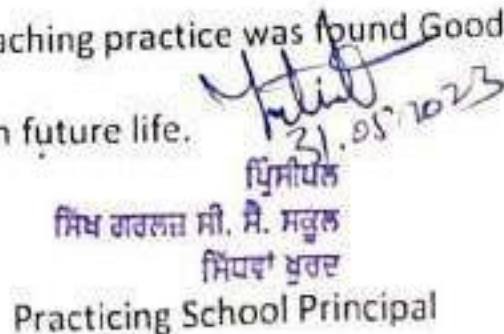 aching practice was found Good
n future life.
31.05.2023
ਪ੍ਰਿੰਸੀਪਲ
ਸਿੱਖ ਗਰਲਜ਼ ਸੀ. ਸੈ. ਸਕੂਲ
ਸਿੱਧਵਾਂ ਖੁਰਦ
Practicing School Principal